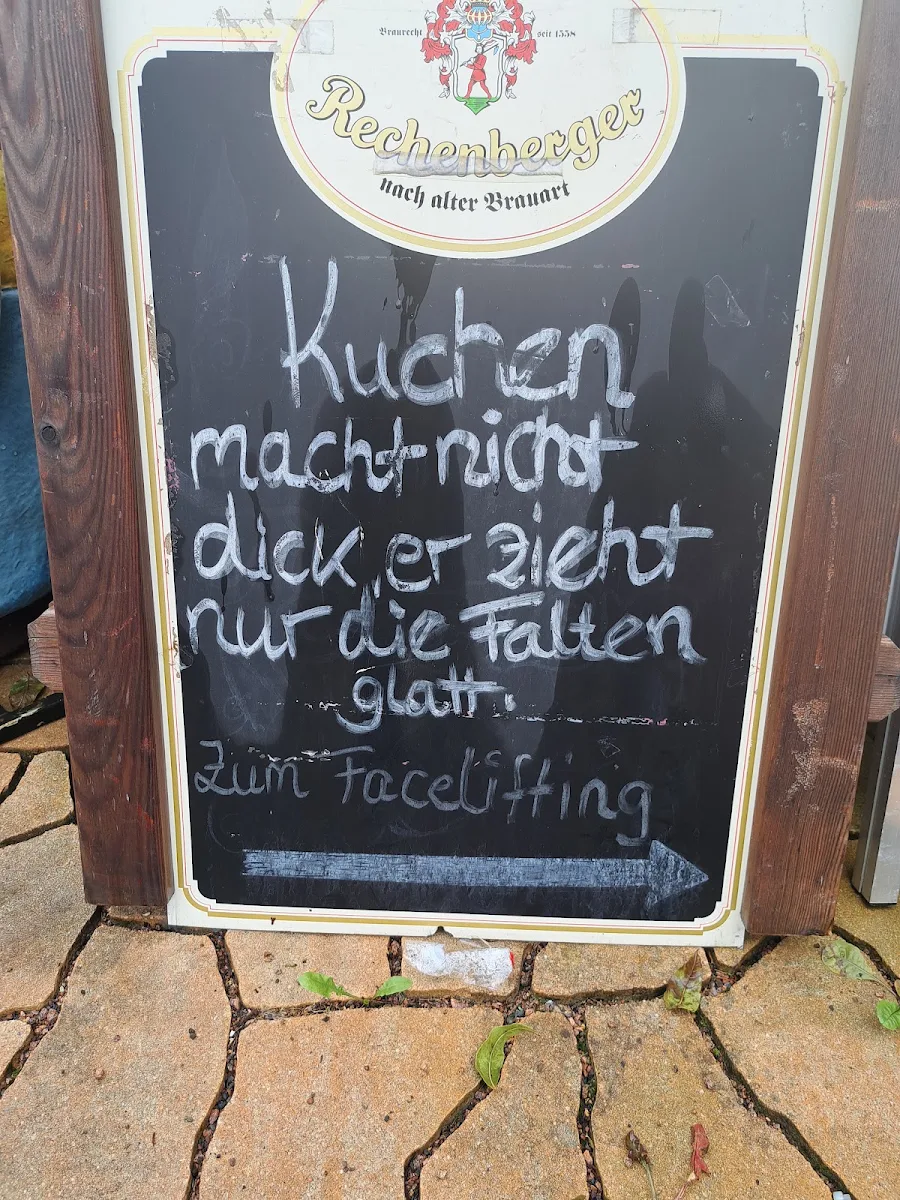 Braurecht seit 1558
Rechenberger
nach alter Brauart
Kuchen
macht nicht
dick, er zieht
nur die Falten
glatt.
Zum Facelifting